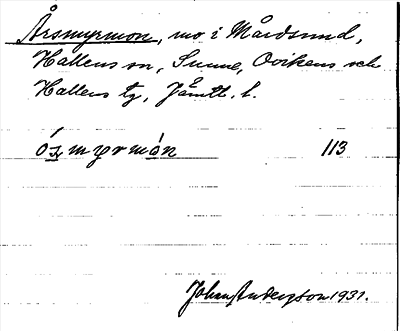 Årsmyrmon, mo i Mårdsund,
Hallens sn, Sunne, Ovikens och
Hallens tg, Jämtl. l.
óʂmyrmòn 113
Johan Anderson 1931.